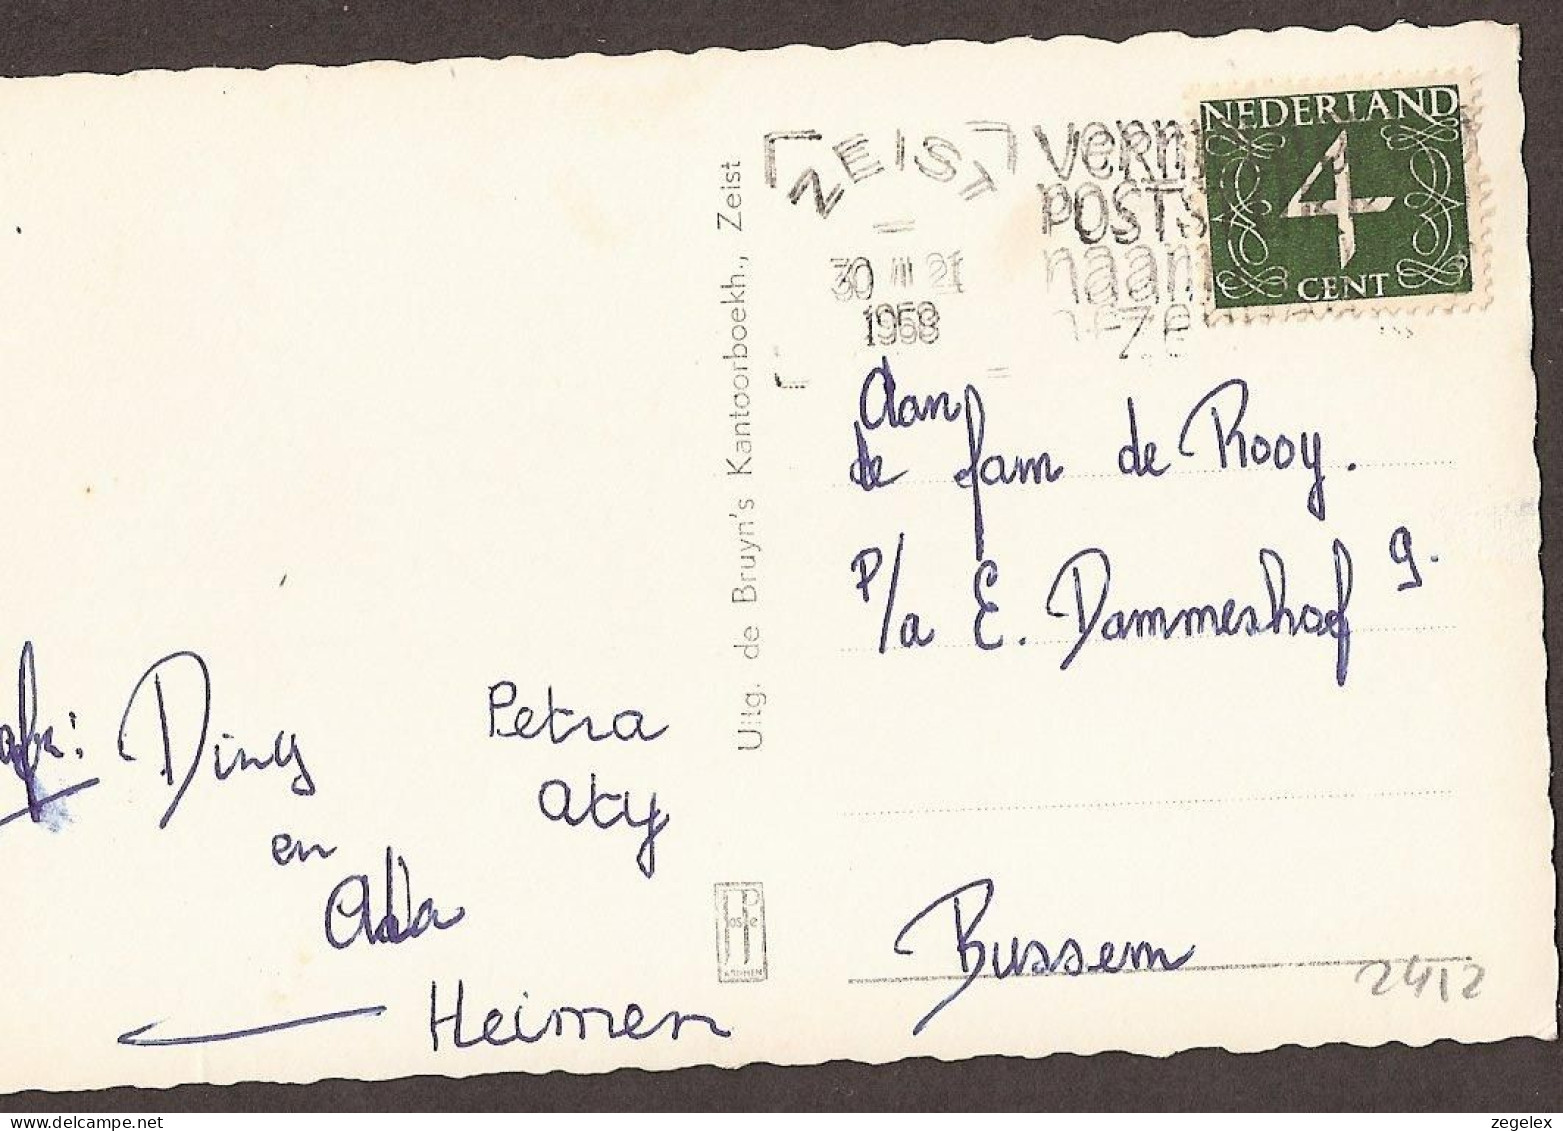 NEDERLAND
4
CENT
ZEIST
30 III 21
1958
POSTS
naam
Uitg. de Bruyn's Kantoorboekh., Zeist
Aan
de fam de Rooy.
P/a E. Dammeshof 9.
Bussem
2412
afz: Diny
en
Ada
Petra
Aty
Heimen
JosPe
ARNHEM
zegelex